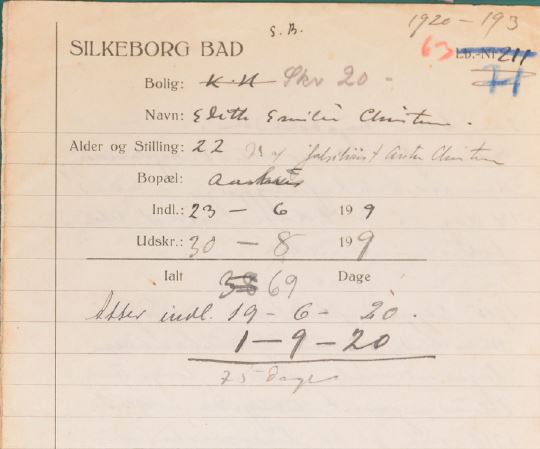 1920-193
S.B.
SILKEBORG BAD
63 Lb.-Nr. 211
Bolig: K.H Skv 20 -
Navn: Edith Emilie Christensen.
Alder og Stilling: 22 af fabrikant Christensen
Bopæl: Aarhus
Indl.: 23 - 6 19 19
Udskr.: 30 - 8 19 19
Ialt 38 69 Dage
Atter indl. 19-6-20.
1-9-20
75 dage